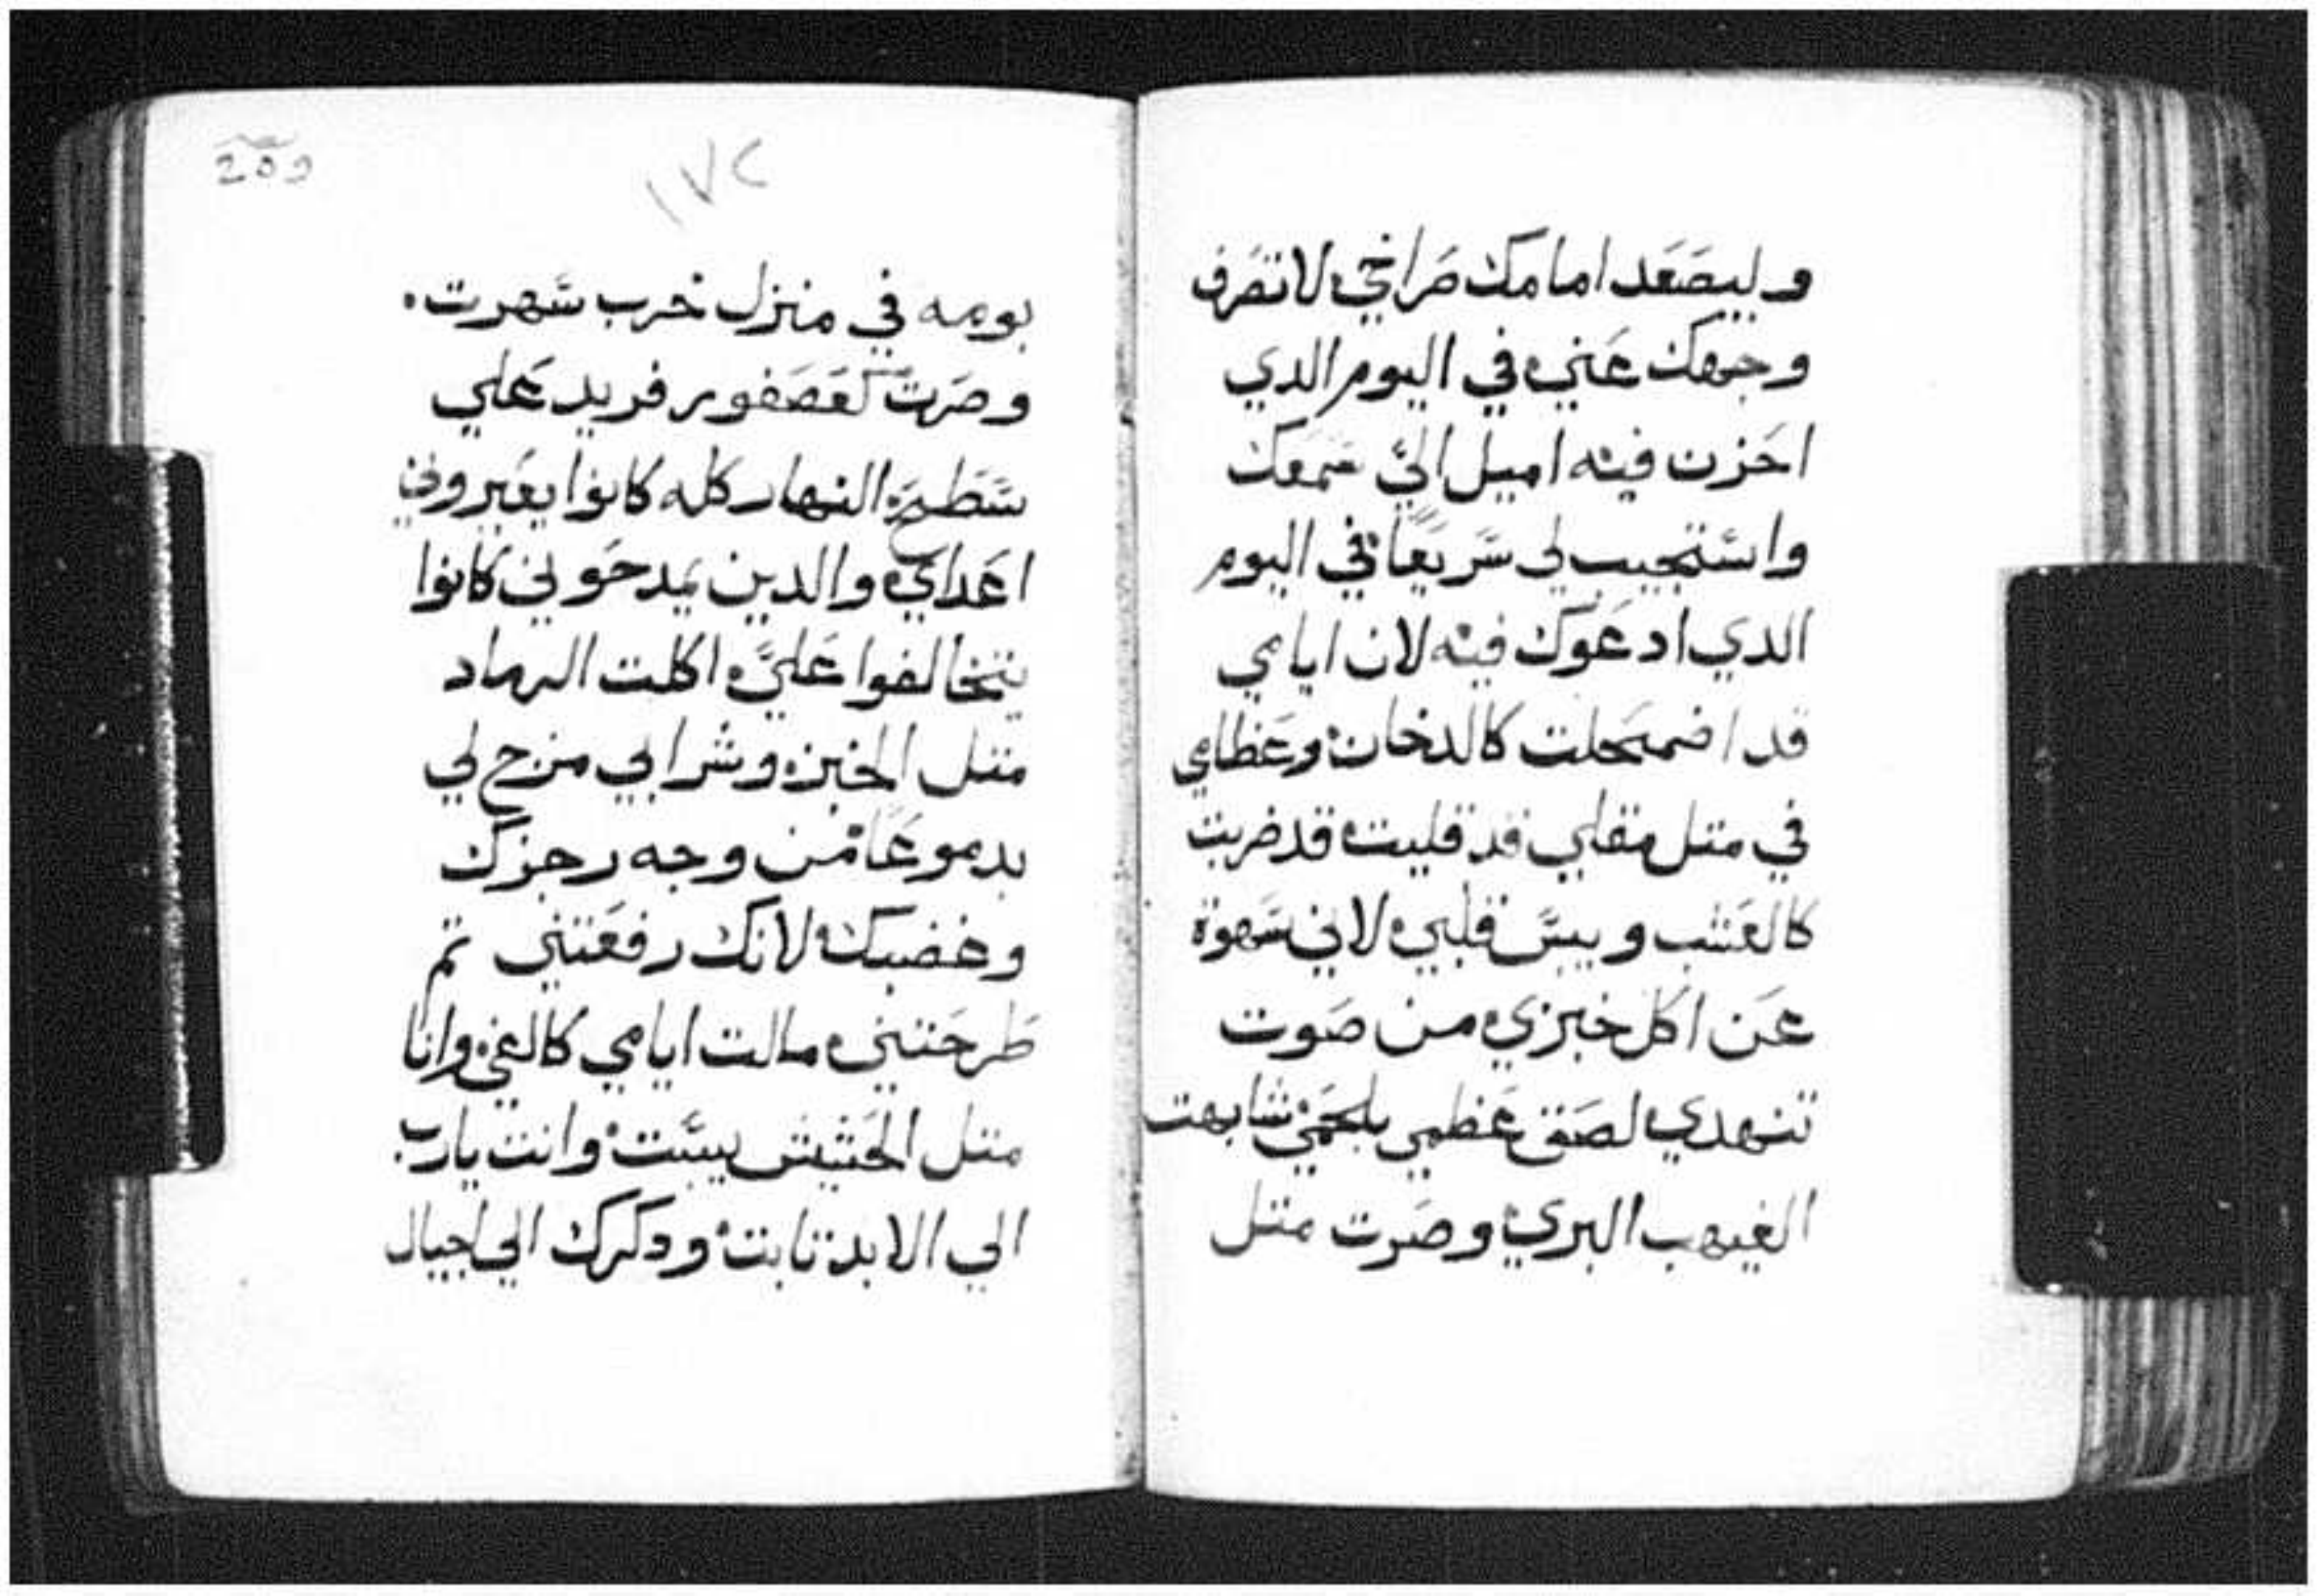 وليصعد امامك صراخي لا تصرف
وجهك عني في اليوم الدي
احزن فيه اميل اليَّ سمعك
واستجيب لي سريعًا في اليوم
الدي ادعوك فيه لان ايامي
قد اضمحلت كالدخان وعظامي
في متل مقلي قد قليت قد ضربت
كالعشب ويبس قلبي لاني سهوة
عن اكل خبزي من صوت
تنهدي لصق عظمي بلحمي شابهت
الغيهب البري وصرت متل
١٧٢
بومه في منزل خرب سهرت.
وصرت كعصفور فريد علي
سطح النهار كله كانوا يعيروني
اعداي والدين يمدحوني كانوا
يتخالفوا عليَّ اكلت الرماد
متل الخبز وشرابي مزج لي
بدموعًا من وجه رجزك
وغضبك لانك رفعتني تم
طرحتني مالت ايامي كالفي وانا
متل الحشيش يبست وانت يارب
الي الابد تابت ودكرك الي اجيال